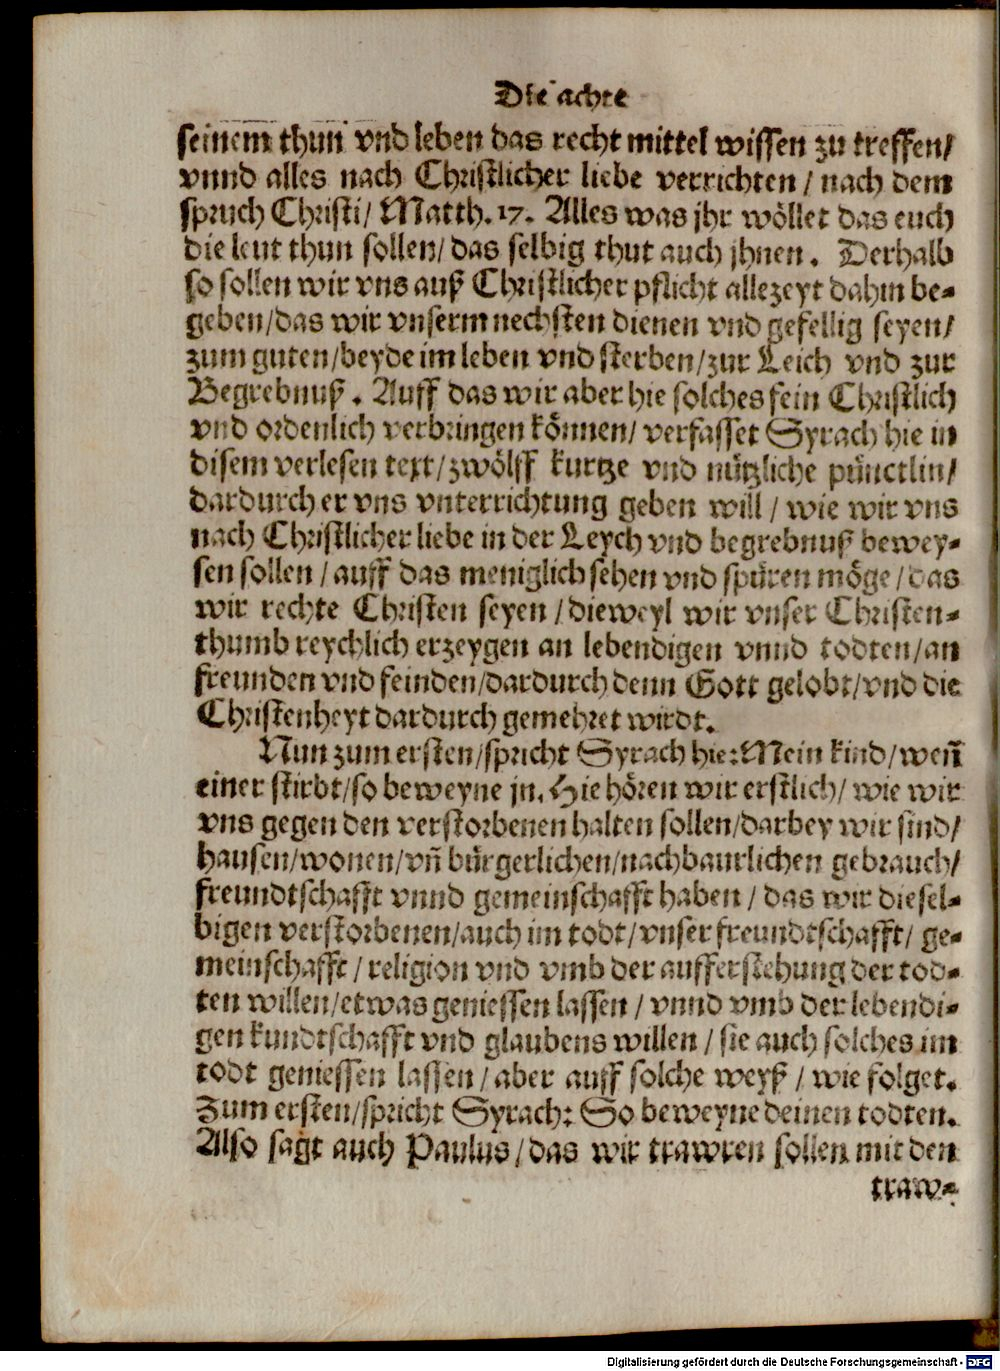 Die achte
seinem thun vnd leben das recht mittel wissen zu treffen/
vnnd alles nach Christlicher liebe verrichten / nach dem
spruch Christi/ Matth. 17. Alles was jhr wöllet das euch
die leut thun sollen/ das selbig thut auch jhnen. Derhalb
so sollen wir vns auß Christlicher pflicht allezeyt dahin be-
geben/das wir vnserm nechsten dienen vnd gefellig seyen/
zum guten/beyde im leben vnd sterben/zur Leich vnd zur
Begrebnuß. Auff das wir aber hie solches fein Christlich
vnd ordenlich verbringen können/ verfasset Syrach hie in
disem verlesen text/zwölff kurtze vnd nützliche pünctlin/
dardurch er vns vnterrichtung geben will / wie wir vns
nach Christlicher liebe in der Leych vnd begrebnuß bewey-
sen sollen / auff das meniglich sehen vnd spüren möge / das
wir rechte Christen seyen / dieweyl wir vnser Christen-
thumb reychlich erzeygen an lebendigen vnnd todten/an
freunden vnd feinden/dardurch denn Gott gelobt/vnd die
Christenheyt dardurch gemehret wirdt.
Nun zum ersten/spricht Syrach hie: Mein kind/ weñ
einer stirbt/so beweyne jn. Hie hören wir erstlich/ wie wir
vns gegen den verstorbenen halten sollen/darbey wir sind/
hausen/wonen/vñ bürgerlichen/nachbaurlichen gebrauch/
freundtschafft vnnd gemeinschafft haben / das wir diesel-
bigen verstorbenen/auch im todt/vnser freundtschafft/ ge-
meinschafft / religion vnd vmb der aufferstehung der tod-
ten willen/etwas geniessen lassen / vnnd vmb der lebendi-
gen kundtschafft vnd glaubens willen / sie auch solches im
todt geniessen lassen / aber auff solche weyß / wie folget.
Zum ersten/spricht Syrach: So beweyne deinen todten.
Also sagt auch Paulus / das wir trawren sollen mit den
traw-
Digitalisierung gefördert durch die Deutsche Forschungsgemeinschaft - DFG